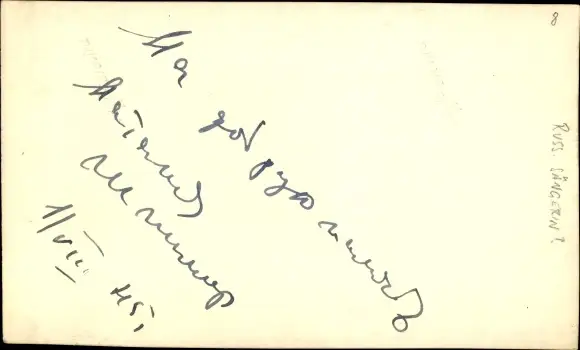 На добрую память
Наталия
Шпиллер
11/VIII. 45,
RUSS. SÄNGERIN?
8